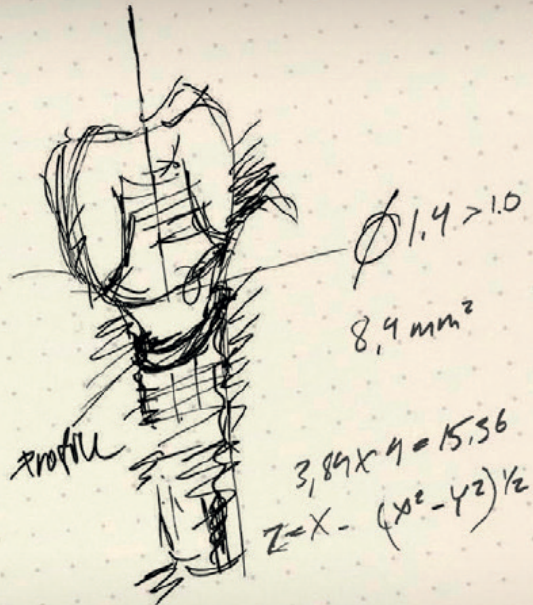 Ø 1.4 > 1.0
8,4 mm²
Profile
3,84 x 4 = 15.36
Z = X - (X² - Y²)½